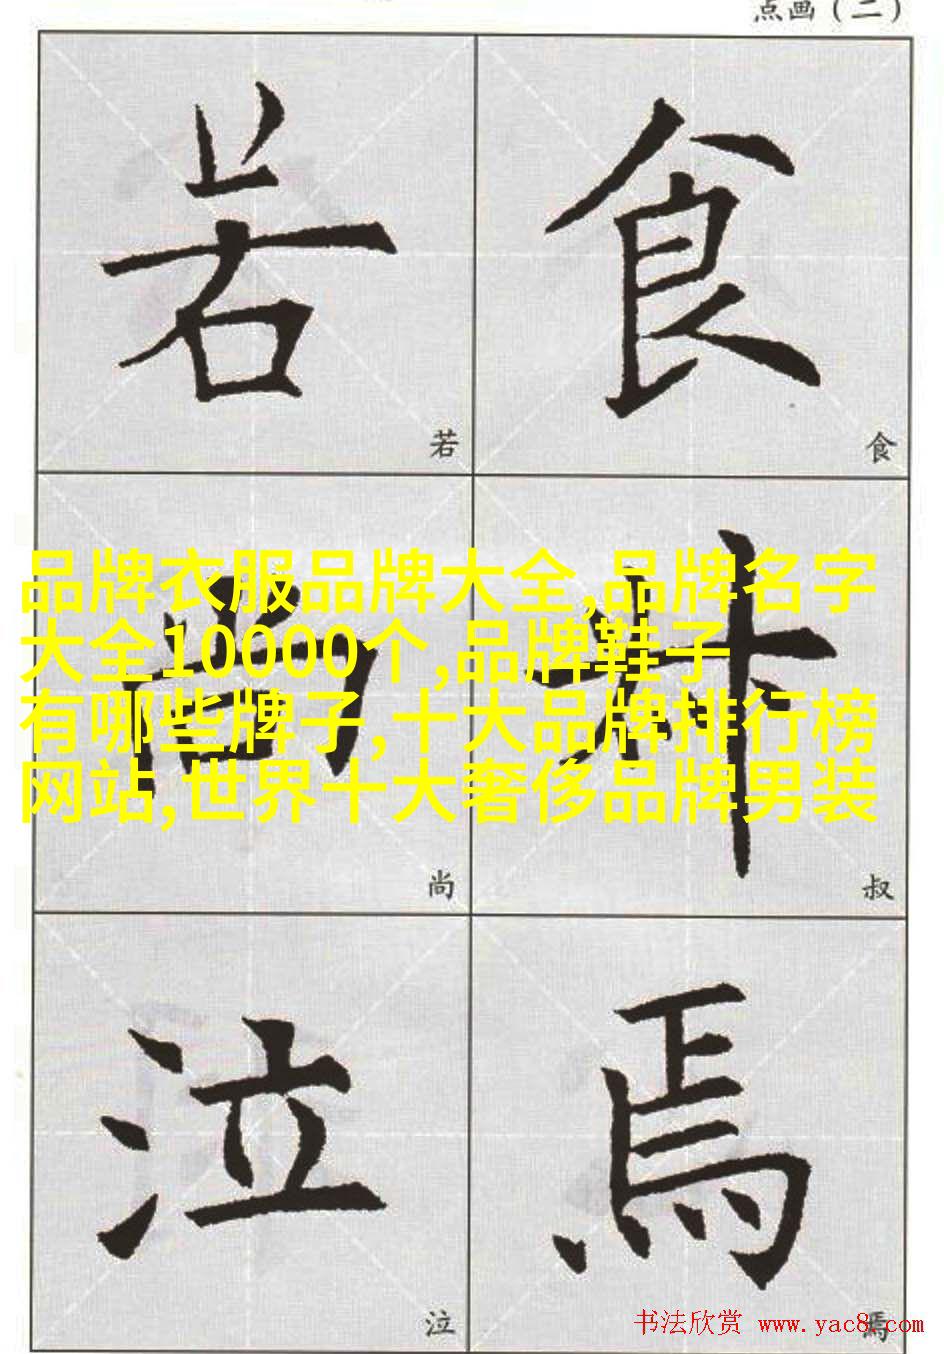 点画（二）
若 食
若 食
品牌衣服品牌大全,品牌名字
大全10000个,品牌鞋子
有哪些牌子,十大品牌排行榜
网站,世界十大奢侈品牌男装
尚 叔
尚 叔
泣 焉
泣 焉
书法欣赏 www.yac8.com